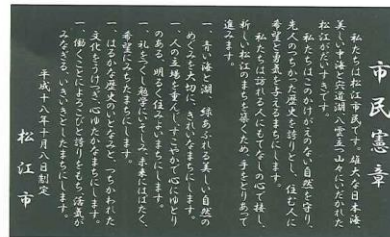 市民憲章
私たちは松江市民です。雄大な日本海、
美しい中海と宍道湖、八雲立つ山々にいだかれた
松江がだいすきです。
私たちはこのかけがえのない自然を守り、
先人のつちかった歴史を誇りとし、住む人に
希望と勇気を与えるまちにします。
私たちは訪れる人にもてなしの心で接し、
新しい松江のまちを築くため、手をとりあって
進みます。
一、青い海と湖、緑あふれる美しい自然の
めぐみを大切に、きれいなまちにします。
一、人の立場を重んじ、すこやかで心にゆとり
のある、明るく住みよいまちにします。
一、礼をつくし、勉学にいそしみ、未来にはばたく、
希望にみちたまちにします。
一、はるかな歴史のいとなみと、つちかわれた
文化をうけつぎ、心ゆたかなまちにします。
一、働くことによろこびと誇りをもち、活気が
みなぎる、いきいきとしたまちにします。
平成十八年十月八日制定
松江市